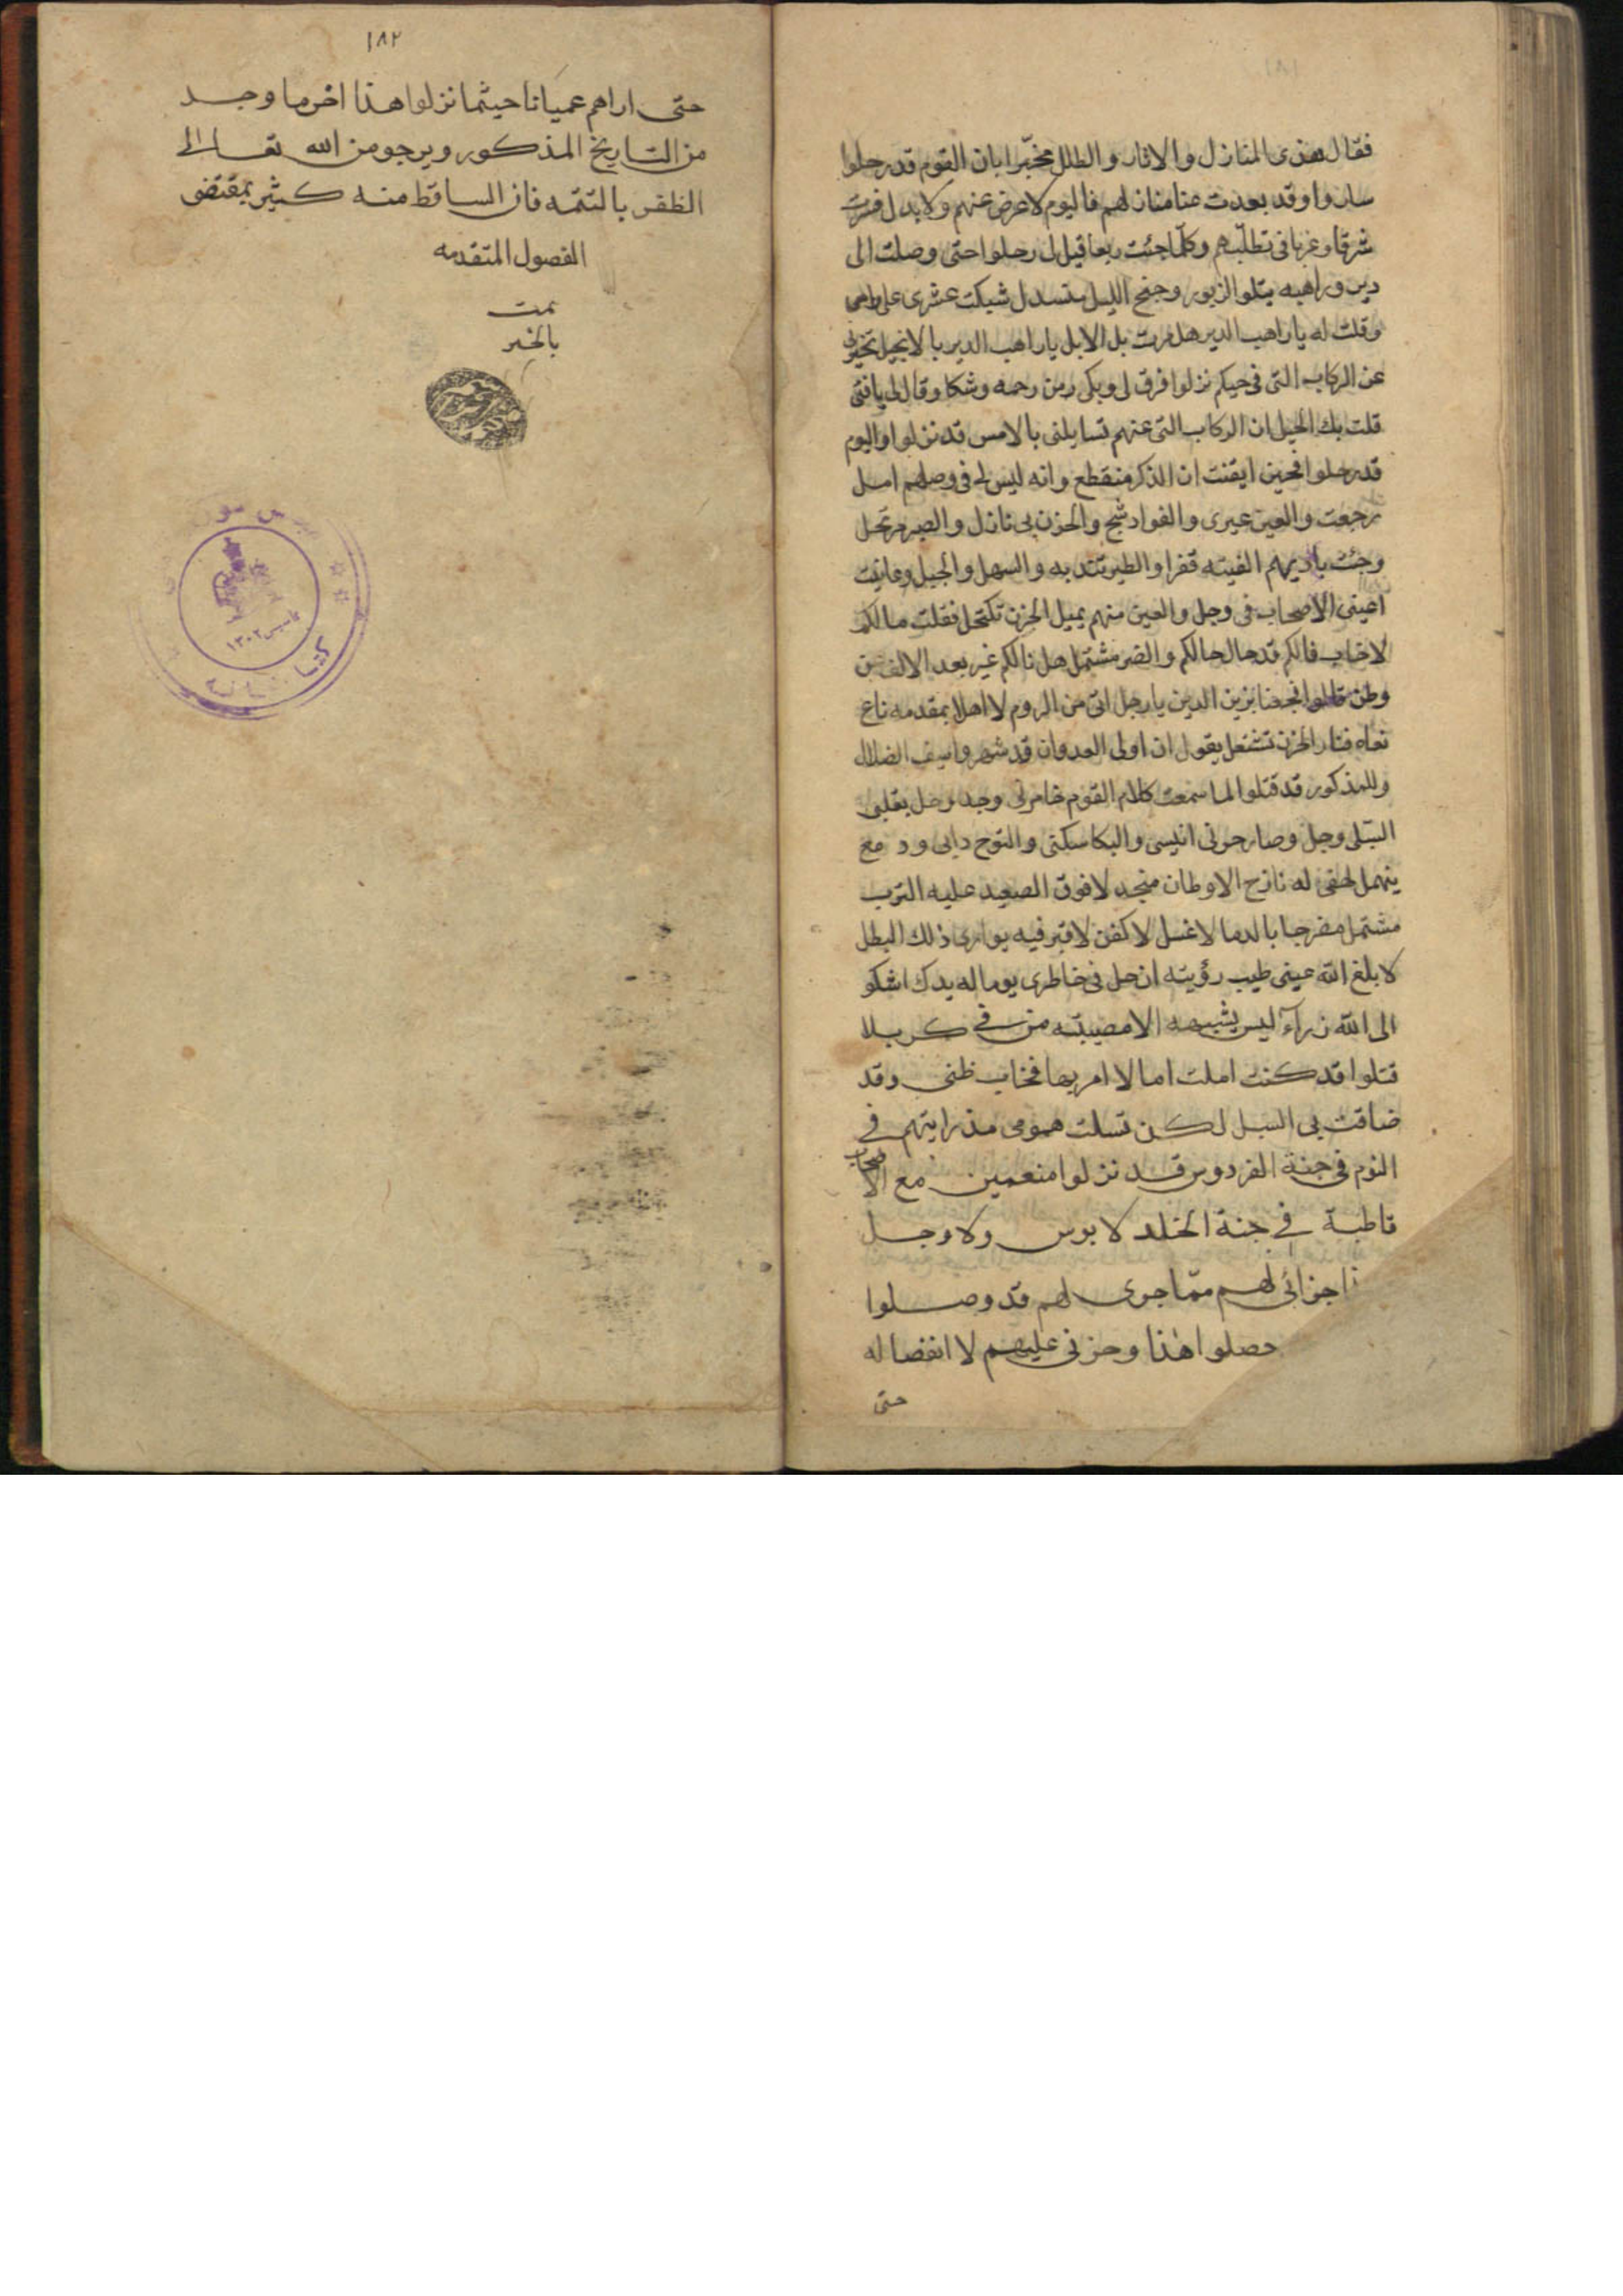 فقال هذى المنازل والاثار والطلل مخبرا بان القوم قد رحلوا
ساروا وقد بعدت عنا منازلهم فاليوم لا عوض عنهم ولا بدل فسرت
شرقا وغربا فى تطلبهم وكلما جئت ربعا قيل لى رحلوا حتى وصلت الى
دير وراهبه يتلو الزبور وجنح الليل منسدل شبكت عشرى على راسى
وقلت له يا راهب الدير هل مرت بك الابل يا راهب الدير بالانجيل تخبرنى
عن الركاب التى فى حيكم نزلوا فرق لى وبكى من رحمه وشكا وقال لى يا فتى
قلت بك الحيل ان الركاب التى عنهم تسايلنى بالامس قد نزلوا واليوم
قد رحلوا فحين ايقنت ان الذكر منقطع وانه ليس لى فى وصلهم امل
رجعت والعين عبرى والفواد شج والحزن بى نازل والصبر مرتحل
وجئت ناديهم الفيته قفرا والطير تندبه والسهل والجبل وعاينت
اعينى الاصحاب فى وجل والعين منهم بميل الحزن تكتحل فقلت ما لكم
لا خاب فالكم قد حال حالكم والضر مشتمل هل نالكم غير بعد الالف من
وطن قالوا فجعنا بزين الدين يا رجل اتى من الروم لا اهلا بمقدمه ناع
نعاه فنار الحزن تشتعل يقول ان اولى العدوان قد شهروا سيف الضلال
وللمذكور قد قتلوا لما سمعت كلام القوم خامرنى وجد وحل بقلبى
البتلى وجل وصار حزنى انيسى والبكا سكنى والنوح دابى ودمع
ينهمل لهفى له نازح الاوطان منجدلا فوق الصعيد عليه الترب
مشتمل مضرجا بالدما لا غسل لا كفن لا قبر فيه يوارى ذلك البطل
لا بلغ الله عينى طيب رؤيته ان حل فى خاطرى يوما له بدل اشكو
الى الله زرآء ليس يشبهه الا مصيبته من فى كربلا
قتلوا قد كنت املت امالا امر بها فخاب ظنى وقد
ضاقت بى السبل لكن تسلت همومى مذ رايتهم فى
النوم فى جنة الفردوس قد نزلوا منعمين مع الاصحاب
قاطبة فى جنة الخلد لا بوس ولا وجل
جزائى لهم مما جرى لهم قد وصلوا
حصلوا هذا وحزنى عليهم لا انفصال له
حتى
١٨٢
حتى اراهم عيانا حيثما نزلوا هذا اخر ما وجد
من التاريخ المذكور ويرجو من الله تعالى
الظفر بالتتمه فان الساقط منه كثير بمقتضى
الفصول المتقدمه
تمت
بالخير
تاسيس ١٣٠٢
كتابخانه